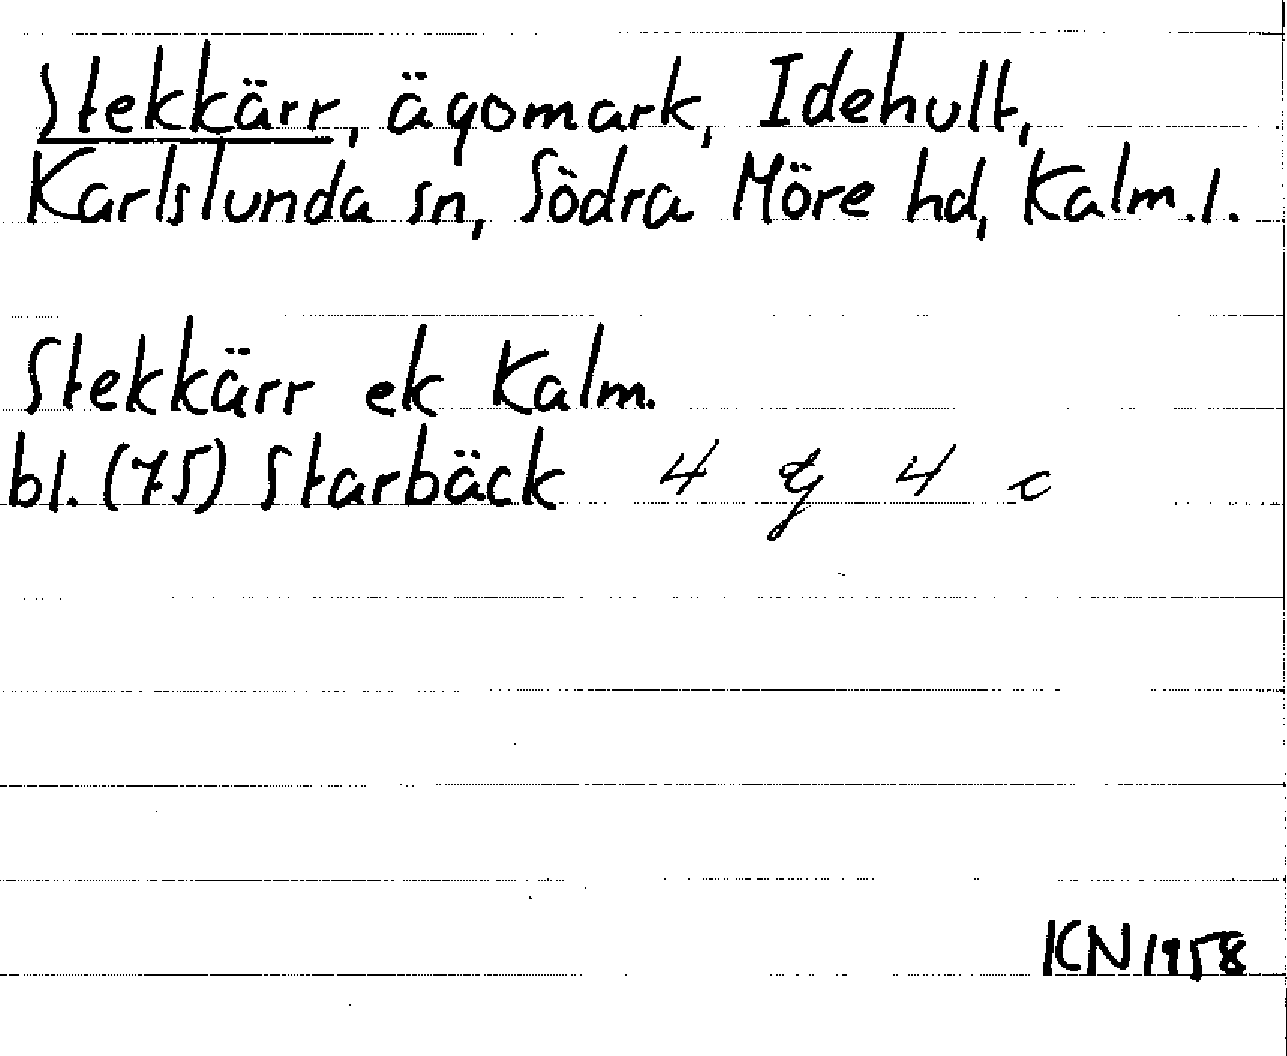 Stekkärr, ägomark, Idehult,
Karlslunda sn, Södra Möre hd, Kalm.l.
Stekkärr ek Kalm.
bl. (75) Starbäck 4 g 4 c
KN 1958